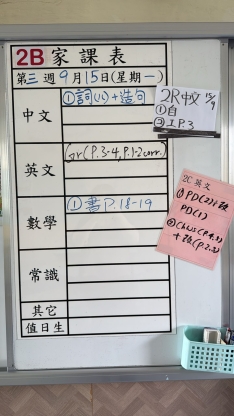 2B 家課表
第三週9月15日(星期一)
中文 ①詞(八)+造句
英文 Gr(P.3-4,P.1-2corr.)
數學 ①書P.18-19
常識
其它
值日生
2R中文 15/9
①自
②工P.3
2C 英文
① PD(2)
PD(1)